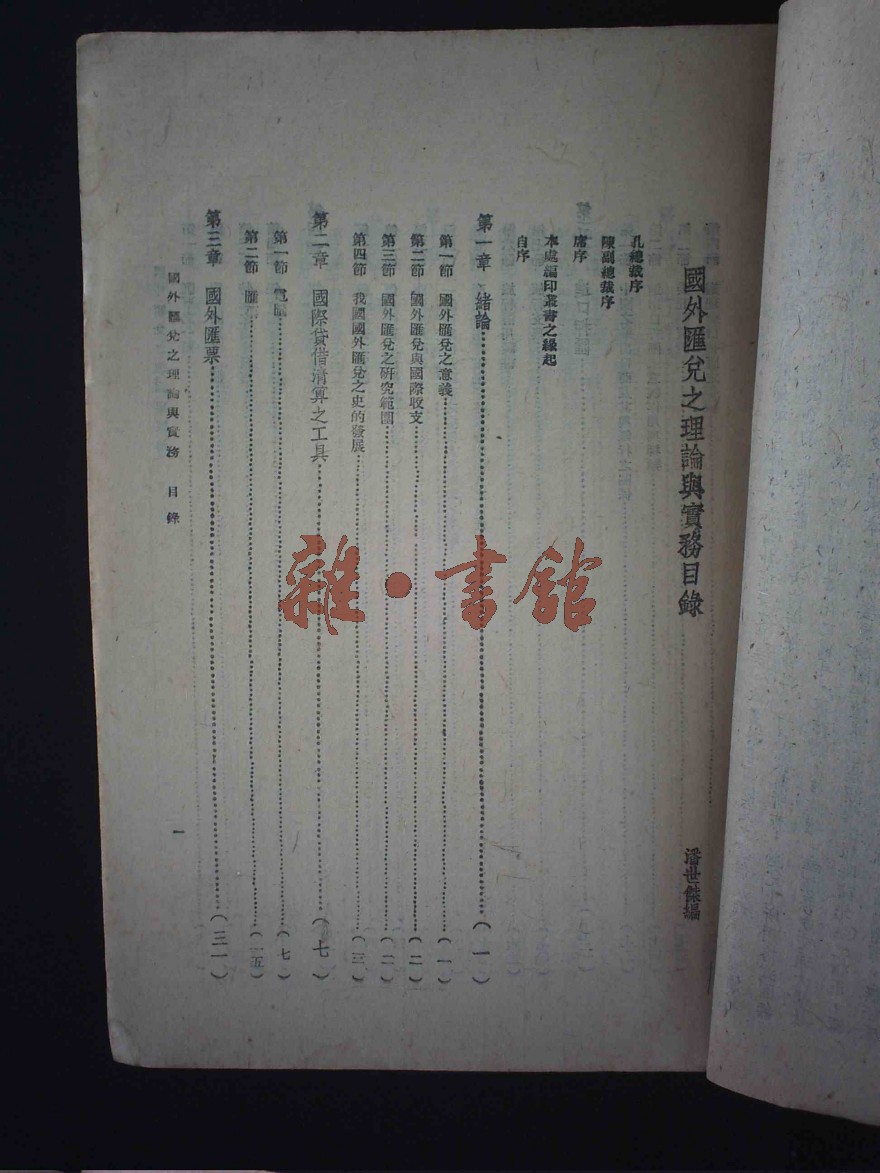 國外匯兌之理論與實務目錄
潘世傑編
孔總裁序
陳副總裁序
席序
本處編印叢書之緣起
自序
第一章 緒論……(一)
第一節 國外匯兌之意義……(一)
第二節 國外匯兌與國際收支……(二)
第三節 國外匯兌之研究範圍……(二)
第四節 我國國外匯兌之史的發展……(三)
第二章 國際貸借清算之工具……(七)
第一節 電匯……(七)
第二節 匯……(一五)
第三章 國外匯票……(三一)
國外匯兌之理論與實務 目錄
一
雜·書館